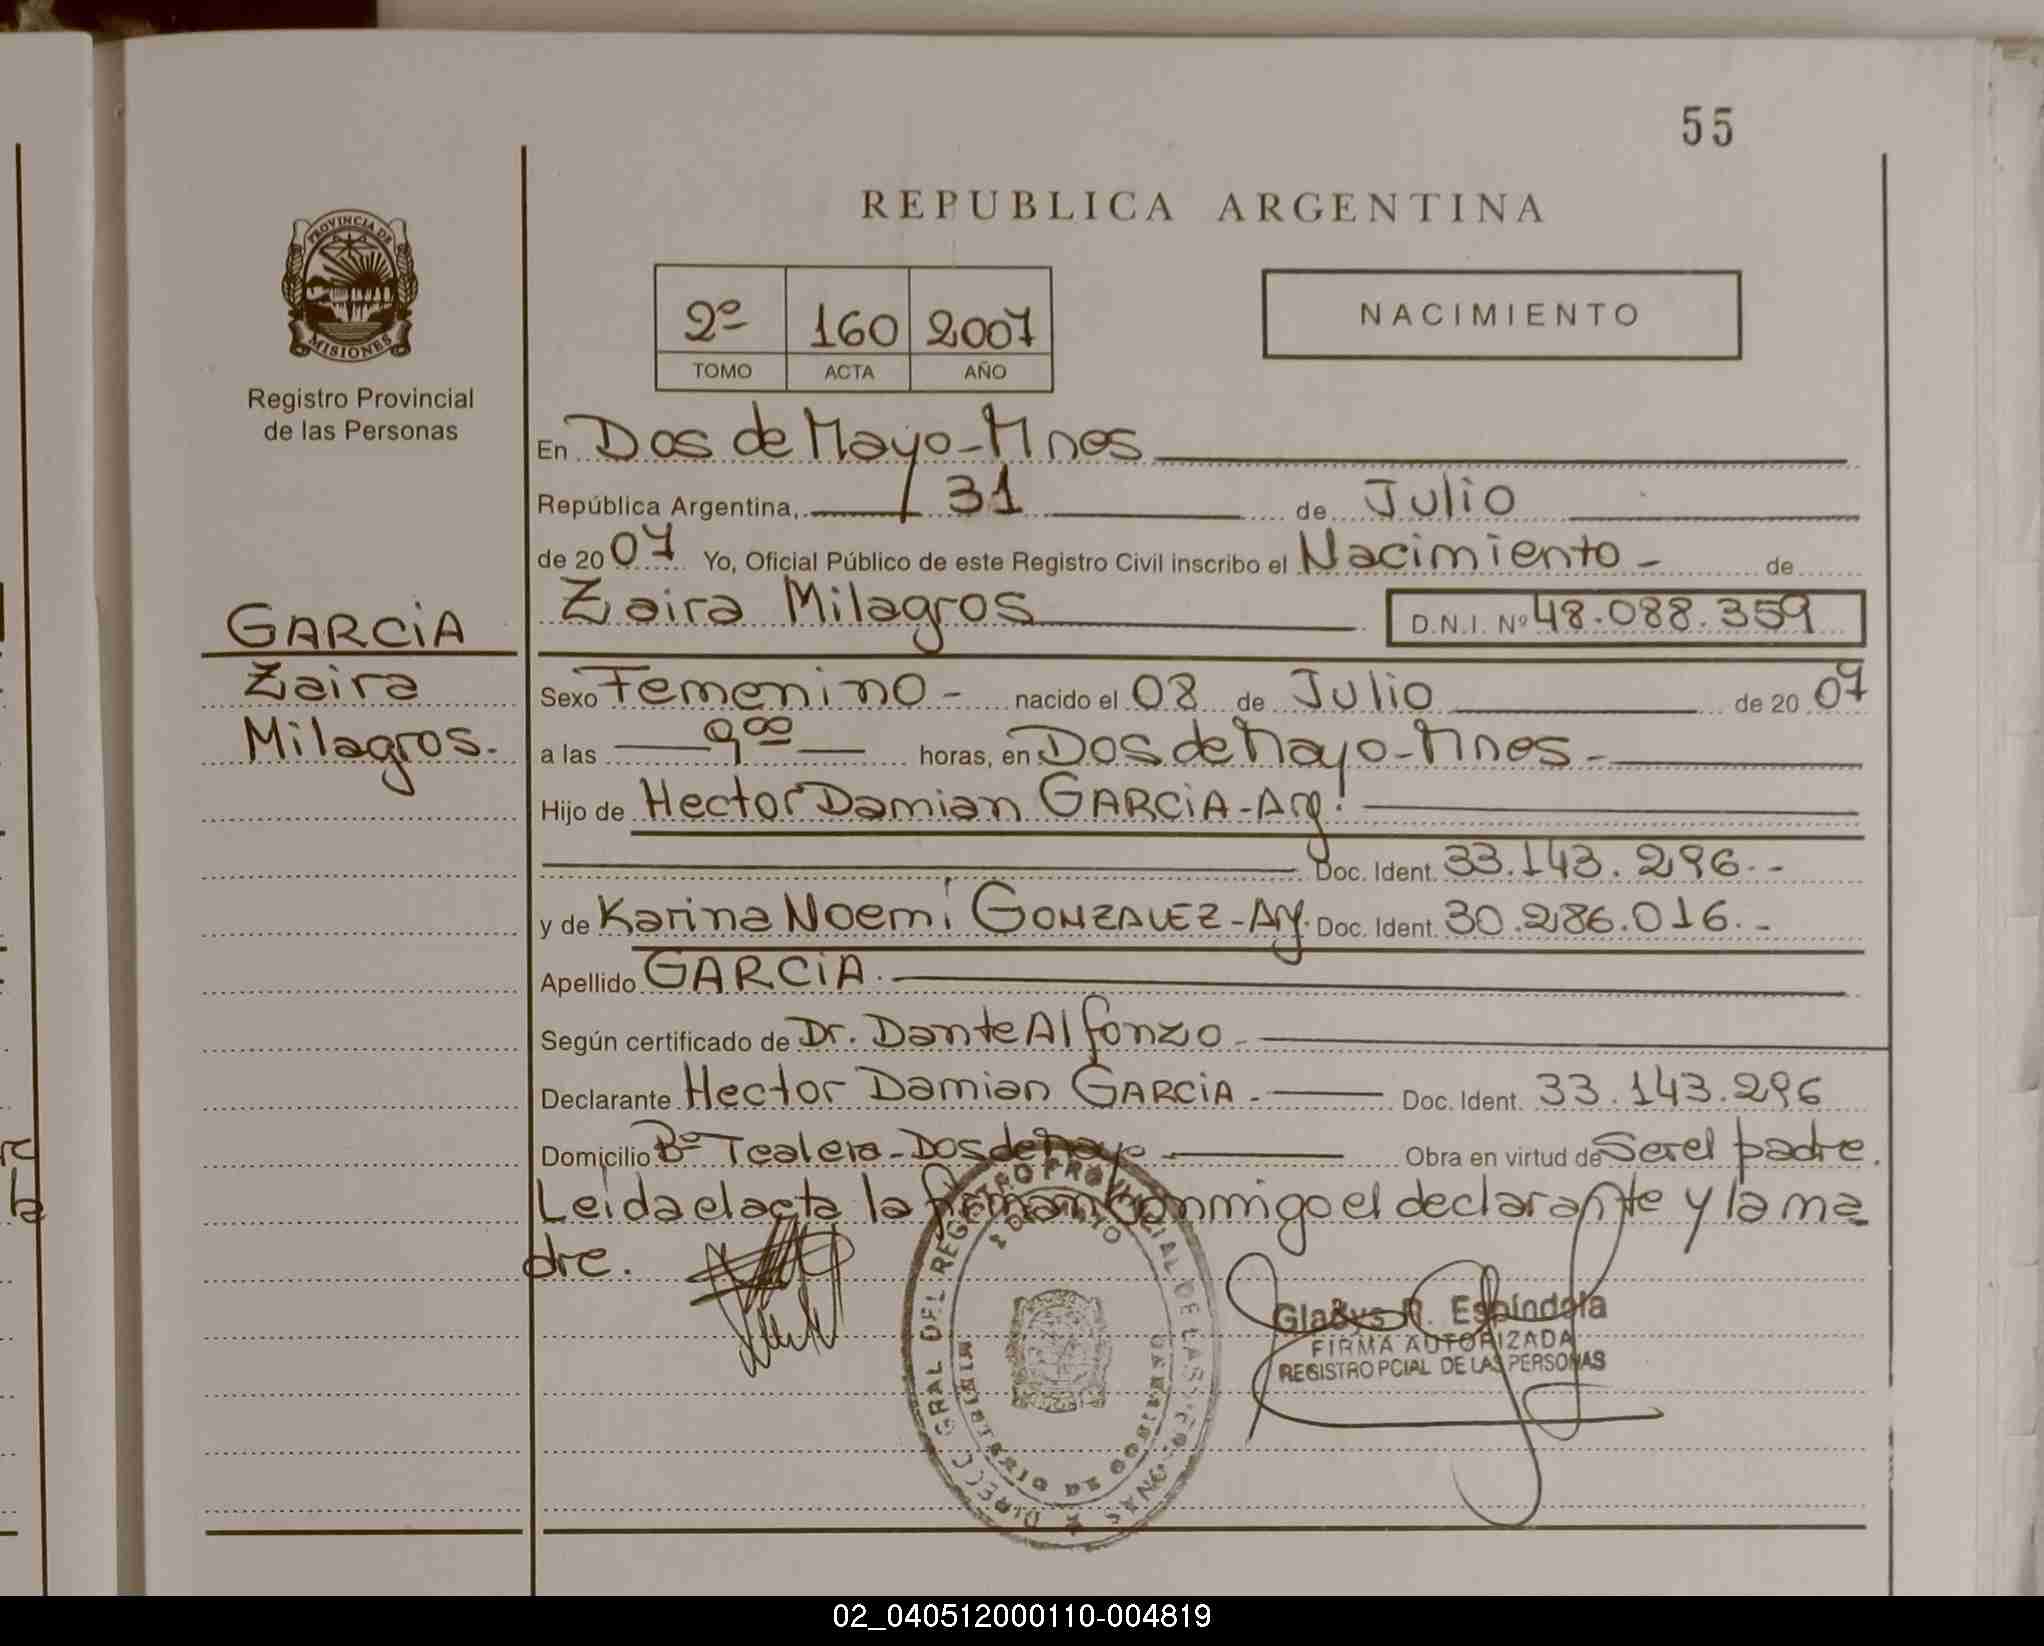 55
REPUBLICA ARGENTINA
PROVINCIA DE
MISIONES
Registro Provincial
de las Personas
2º 160 2007
TOMO ACTA AÑO
NACIMIENTO
En Dos de Mayo-Mnes
República Argentina, 31 de Julio
de 2007 Yo, Oficial Público de este Registro Civil inscribo el Nacimiento - de
Zaira Milagros D.N.I. Nº 48.088.359
GARCIA
Zaira
Milagros.
Sexo Femenino - nacido el 08 de Julio de 2007
a las 9 00 horas, en Dos de Mayo-Mnes -
Hijo de Hector Damian GARCIA-Arg!
Doc. Ident. 33.143.296.-
y de Karina Noemí GONZALEZ-Arg. Doc. Ident. 30.286.016.-
Apellido GARCIA.
Según certificado de Dr. Dante Alfonzo -
Declarante Hector Damian GARCIA. Doc. Ident. 33.143.296
Domicilio Bº Tealera-Dos de Mayo Obra en virtud de Ser el padre.
Leida el acta la firman conmigo el declarante y la ma
dre.
DIRECC GRAL DEL REGISTRO PROVINCIAL DE LAS PERSONAS
Gladys R. Espíndola
FIRMA AUTORIZADA
REGISTRO PCIAL DE LAS PERSONAS
02_040512000110-004819